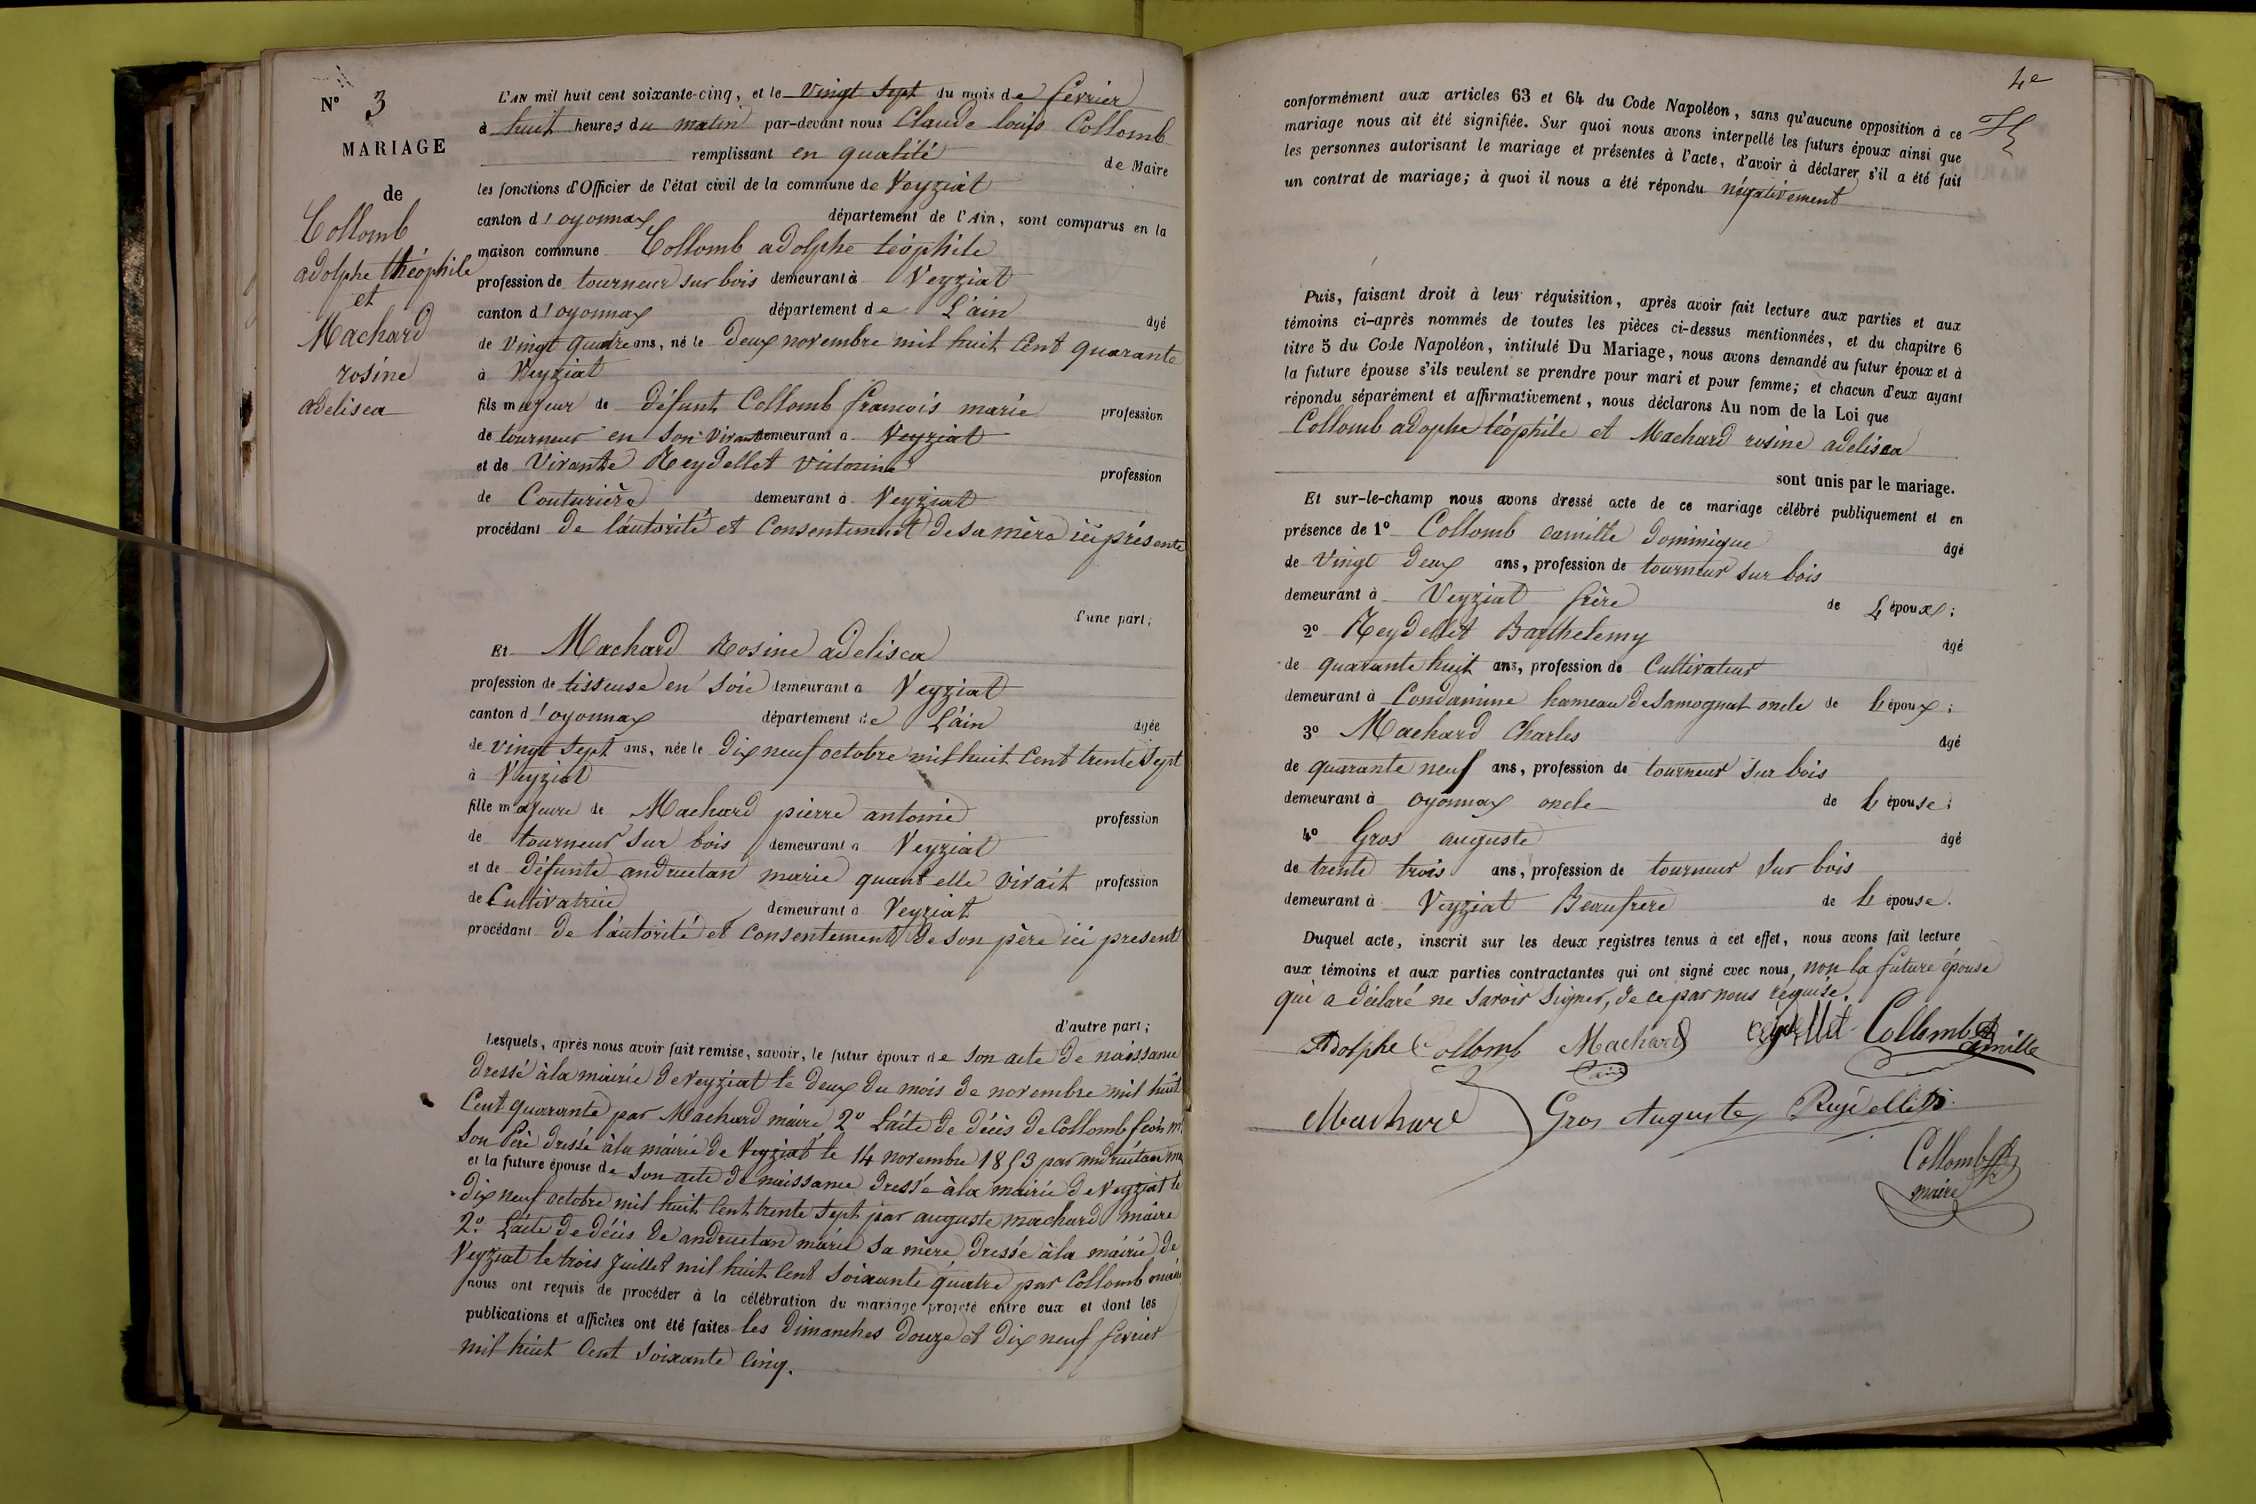 N° 3
MARIAGE
de
Collomb
adolphe théophile
et
Machard
rosine
adelisca
L'AN mil huit cent soixante-cinq, et le vingt sept du mois de février
à huit heures du matin par-devant nous Claude louis Collomb
remplissant en qualité de Maire
les fonctions d'Officier de l'état civil de la commune de Veyziat
canton d'oyonnax département de l'Ain, sont comparus en la
maison commune Collomb adolphe téophile
profession de tourneur sur bois demeurant à Veyziat
canton d'oyonnax département de L'ain âgé
de vingt quatre ans, né le deux novembre mil huit Cent quarante
à Veyziat
fils majeur de défunt Collomb francois marie profession
de tourneur en son vivant demeurant à Veyziat
et de vivante Reydellet victorine profession
de Couturière demeurant à Veyziat
procédant de l'autorité et Consentement de sa mère ici présente
d'une part;
Et Machard Rosine adelisca
profession de tisseuse en soie demeurant à Veyziat
canton d'oyonnax département de L'ain âgée
de vingt sept ans, née le dix neuf octobre mil huit Cent trente Sept
à Veyziat
fille majeure de Machard pierre antoine profession
de tourneur sur bois demeurant à Veyziat
et de défunte andruetan marie quant elle vivait profession
de Cultivatrice demeurant à Veyziat
procédant de l'autorité et Consentement de son père ici present
d'autre part;
Lesquels, après nous avoir fait remise, savoir, le futur époux de son acte de naissance
dressé à la mairie de Veyziat le deux du mois de novembre mil huit
Cent quarante par Machard maire 2° L'acte de décès de Collomb fcois m.
son Père dressé à la mairie de Veyziat le 14 novembre 1853 par andruétan
et la future épouse de son acte de naissance dressé à la mairie de Veyziat le
dix neuf octobre mil huit Cent trente Sept par auguste machard maire
2° L'acte de décès de andruetan marie sa mère dressé à la mairie de
Veyziat le trois Juillet mil huit Cent soixante quatre par Collomb maire
nous ont requis de procéder à la célébration du mariage projeté entre eux et dont les
publications et affiches ont été faites les dimanches douze et dix neuf fevrier
mil huit Cent soixante Cinq.
4e
conformément aux articles 63 et 64 du Code Napoléon, sans qu'aucune opposition à ce
mariage nous ait été signifiée. Sur quoi nous avons interpellé les futurs époux ainsi que
les personnes autorisant le mariage et présentes à l'acte, d'avoir à déclarer s'il a été fait
un contrat de mariage; à quoi il nous a été répondu négativement
Puis, faisant droit à leur réquisition, après avoir fait lecture aux parties et aux
témoins ci-après nommés de toutes les pièces ci-dessus mentionnées, et du chapitre 6
titre 5 du Code Napoléon, intitulé Du Mariage, nous avons demandé au futur époux et à
la future épouse s'ils veulent se prendre pour mari et pour femme; et chacun d'eux ayant
répondu séparément et affirmativement, nous déclarons Au nom de la Loi que
Collomb adophe téophile et Machard rosine adelisca
sont unis par le mariage.
Et sur-le-champ nous avons dressé acte de ce mariage célébré publiquement et en
présence de 1° Collomb camille dominique âgé
de vingt deux ans, profession de tourneur sur bois
demeurant à Veyziat frère de L'époux;
2° Reydellet Barthelemy âgé
de quarante huit ans, profession de Cultivateur
demeurant à Condamine hameau de Samognat oncle de L'époux;
3° Machard Charles âgé
de quarante neuf ans, profession de tourneur sur bois
demeurant à oyonnax oncle de L'épouse;
4° Gros auguste âgé
de trente trois ans, profession de tourneur sur bois
demeurant à Veyziat Beaufrere de L'épouse.
Duquel acte, inscrit sur les deux registres tenus à cet effet, nous avons fait lecture
aux témoins et aux parties contractantes qui ont signé avec nous, non la future épouse
qui a déclaré ne savoir signer, de ce par nous requise.
Adolphe Collomb Machard Collomb Camille
Machard Gros Auguste
Collomb
maire